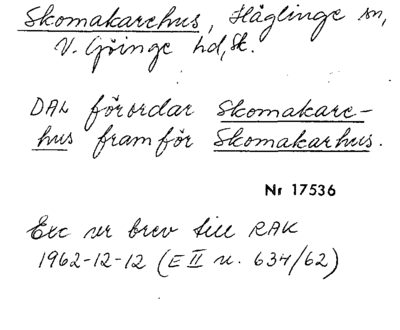 Skomakarehus, Häglinge sn,
V. Göinge hd, Sk.
DAL förordar Skomakare-
hus framför Skomakarhus.
Nr 17536
Exc ur brev till RAK
1962-12-12 (E II u. 634/62)